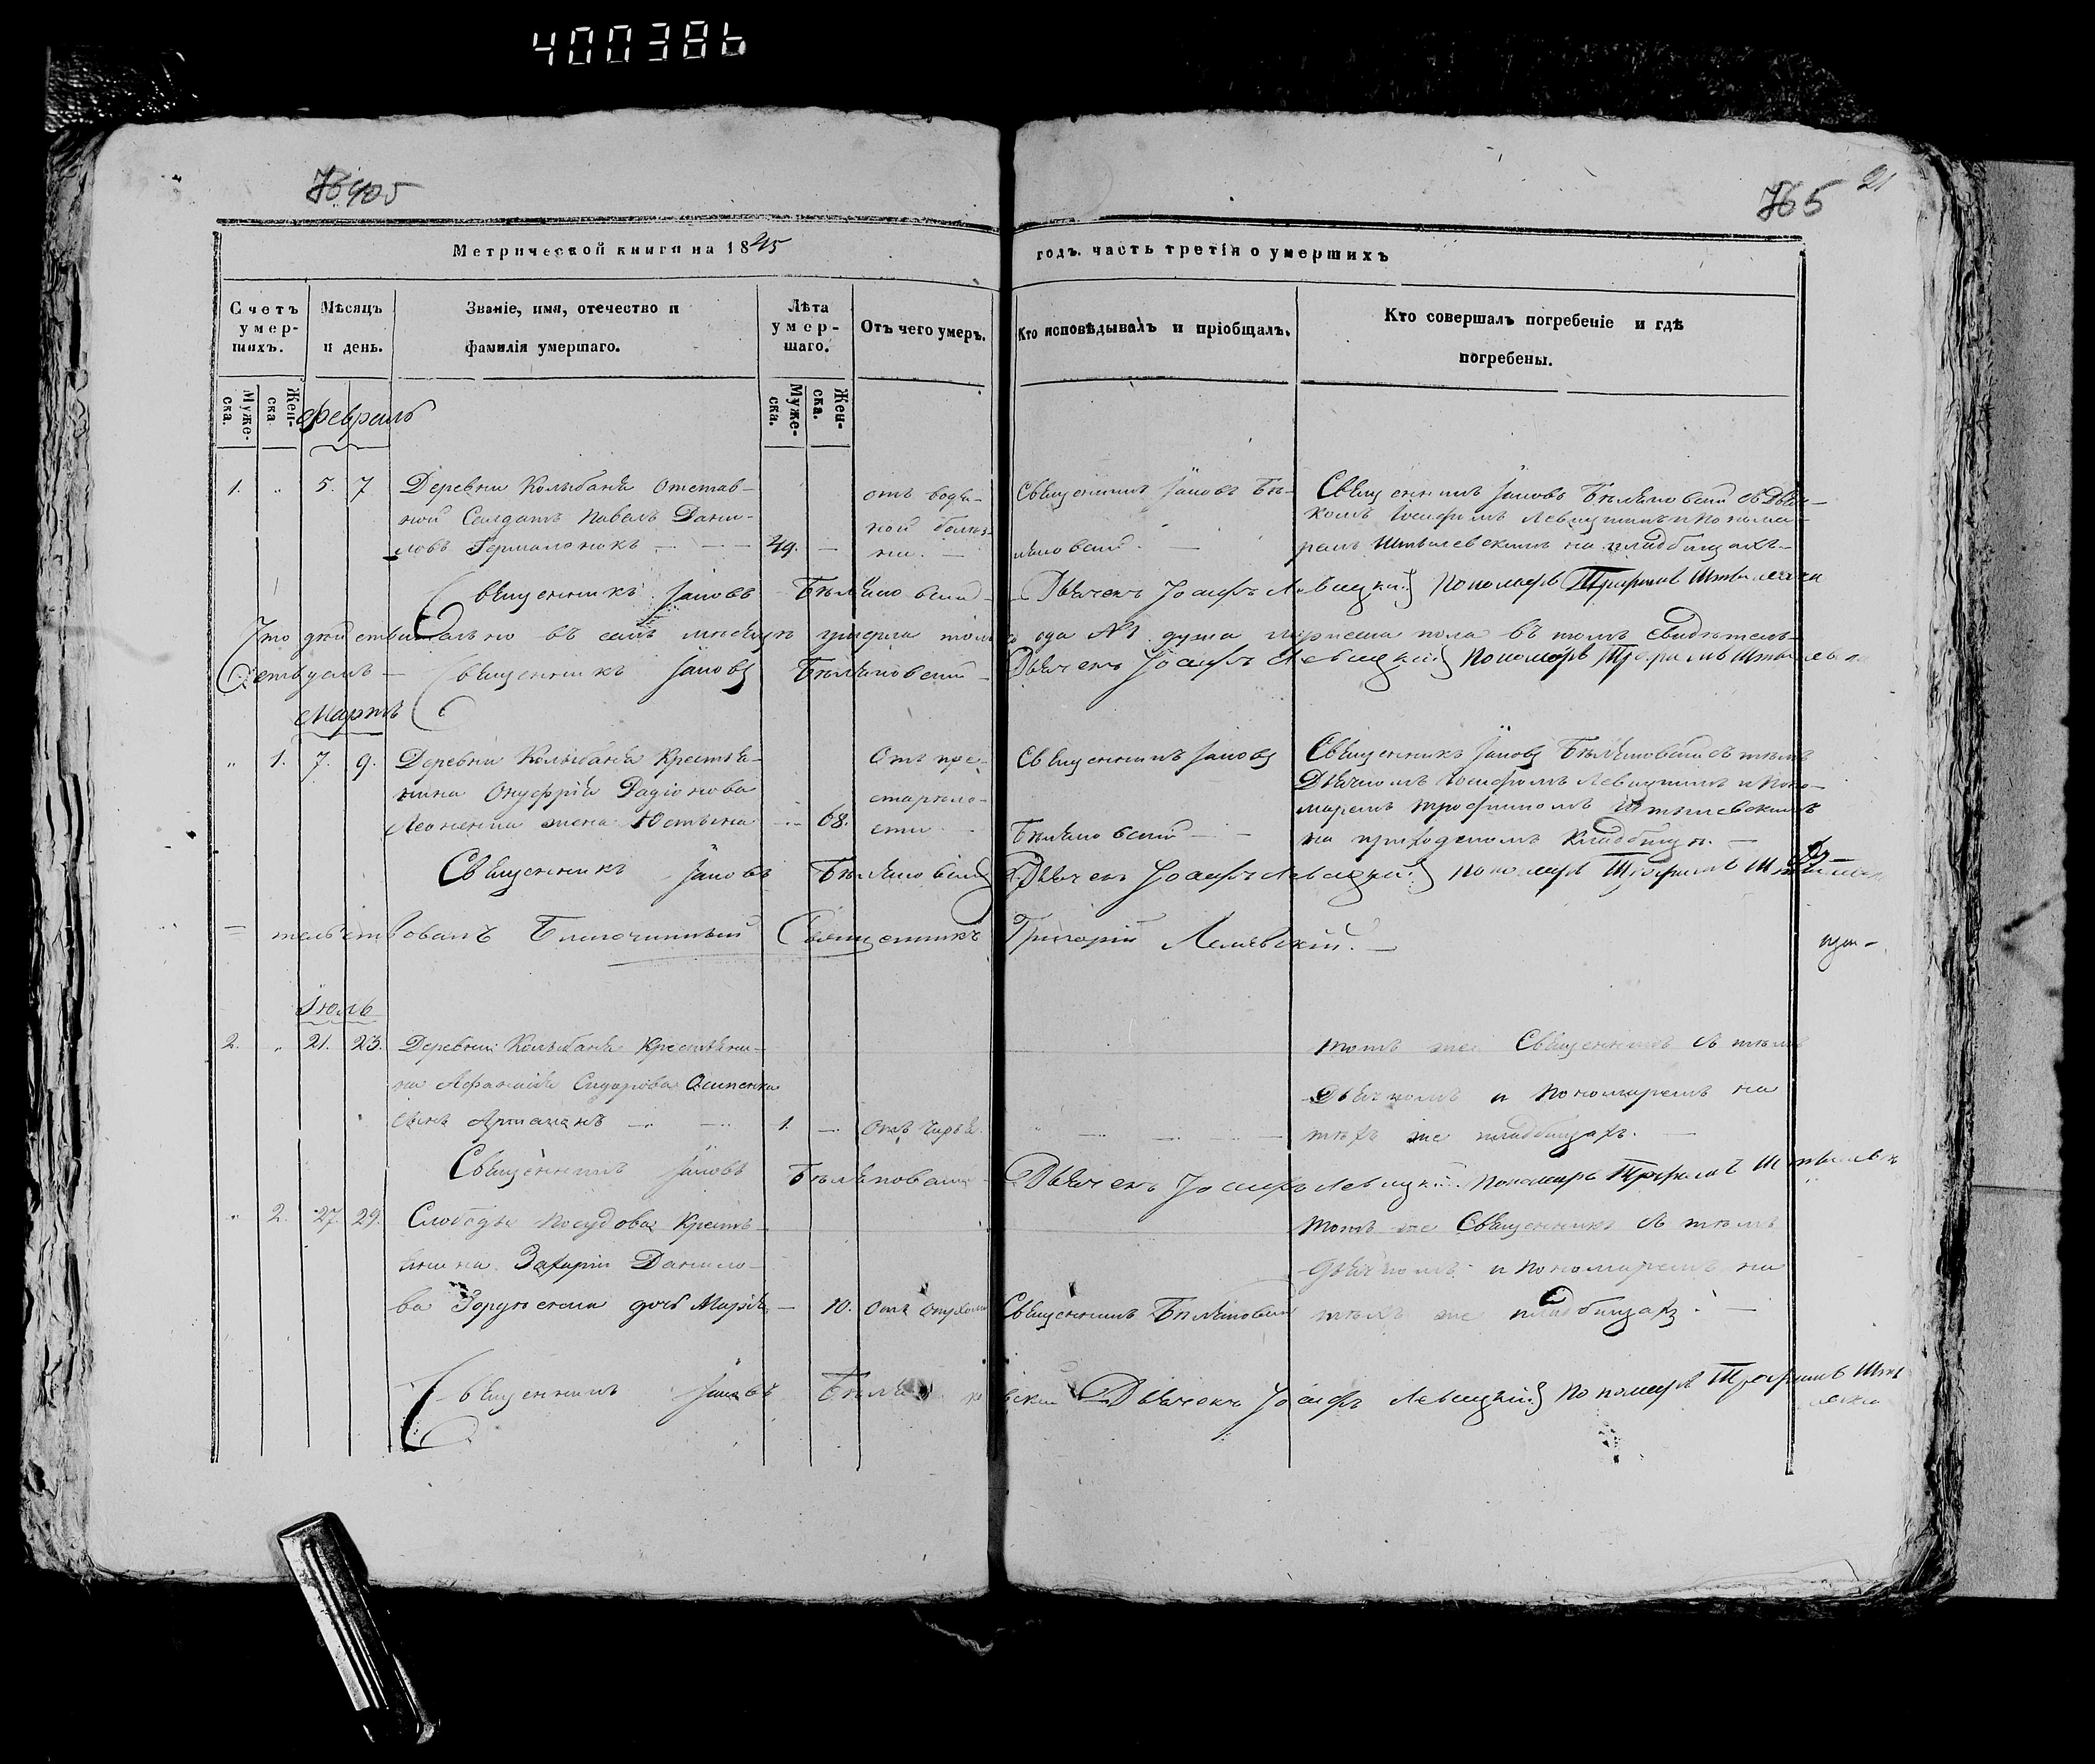 400386
765
21
Метрической книги на 1845
годъ. часть третія о умершихъ
Счетъ умер-шихъ.
Мѣсяцъ и день.
Званіе, имя, отечество и
фамилія умершаго.
Лѣта умер-шаго.
Отъ чего умеръ.
Кто исповѣдывалъ и пріобщалъ.
Кто совершалъ погребеніе и гдѣ
погребены.
Муже-ска.
Жен-ска
Муже-ска.
Жен-ска.
Февраль
1. „ 5. 7 Деревни Колыбаня отстав-
ной Солдатъ Павелъ Дани-
ловъ 49. —
отъ водя-
ной болѣз-
ни. —
Священникъ Іаковъ Бѣ-
ляновскій. —
Священникъ Іаковъ Бѣляновскій съ Дьяч-
комъ Іосифомъ Левицкимъ и Понома-
ремъ на кладбищахъ—
Священникъ Іаковъ Бѣляновскій — Дьячекъ Іосифъ Левицкій Пономарь Трофимъ
Что дѣйствительно въ семъ мѣсяцѣ умерла только одна №1 душа мужеска пола въ томъ свидѣтель-
ствуемъ — Священникъ Іаковъ Бѣляновскій — Дьячекъ Іосифъ Левицкій Пономарь Трофимъ
Мартъ
„ 1. 7. 9. Деревни Колыбаня Крестья-
нина Онуфрія Радіонова
жена Юстина — 68.
Отъ пре-
старѣло-
сти
Священникъ Іаковъ
Бѣляновскій —
Священникъ Іаковъ Бѣляновскій съ тѣмъ
Дьячкомъ Іосифомъ Левицкимъ и Поно-
маремъ Трофимомъ
на приходскомъ Кладбищѣ. —
Священникъ Іаковъ Бѣляновскій Дьячекъ Іосифъ Левицкій Пономарь Трофимъ
= тельствовалъ Благочинный Священникъ Григорій
Іюль
2. „ 21. 23. Деревни Колыбаня Крестьяни-
на Афанасія Сидорова Осипенка
сынъ 1. — Отъ
Тотъ же Священникъ съ тѣмъ
Дьячкомъ и Пономаремъ на
тѣхъ же кладбищахъ. —
Священникъ Іаковъ Бѣляновскій — Дьячекъ Іосифъ Левицкій. Пономарь Трофимъ
„ 2. 27. 29. Слободы Посудова Крестъ-
янина Захарія Данило-
ва дочь Марія — 10. Отъ опухоли
Священникъ Бѣляновскій
Тотъ же Священникъ съ тѣмъ
Дьячкомъ и Пономаремъ на
тѣхъ же кладбищахъ. —
Священникъ Іаковъ Дьячекъ Іосифъ Левицкій Пономарь Трофимъ